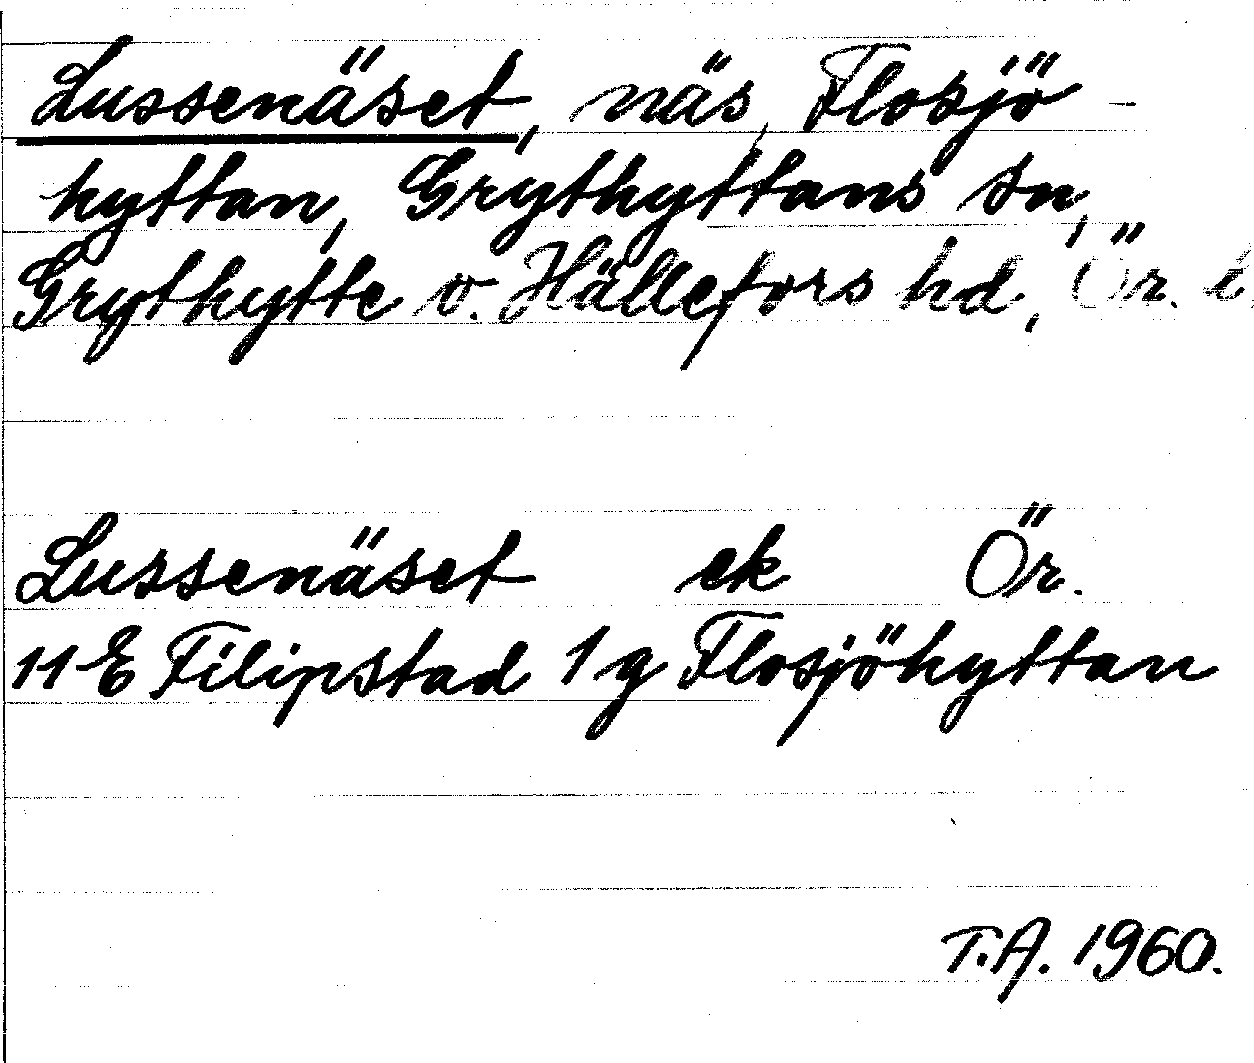 Lussenäset, näs, Flosjö-
hyttan, Grythyttans sn,
Grythytte o. Hällefors hd, Ör. l
Lussenäset ek Ör.
11 E Filipstad 1 g Flosjöhyttan
T.A. 1960.